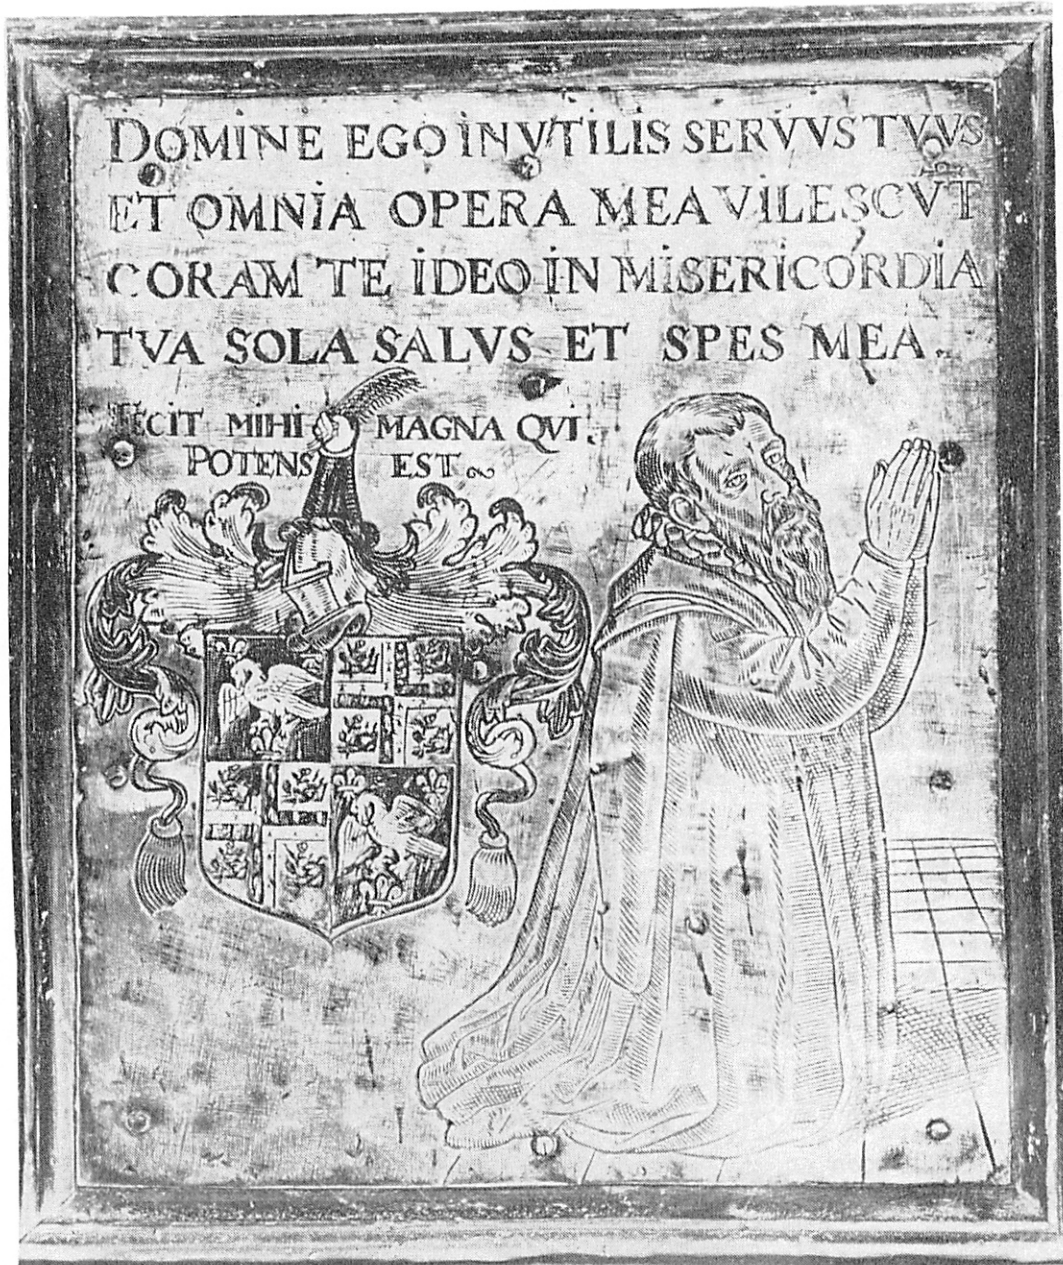 DOMINE EGO INVTILIS SERVVS TVVS
ET OMNIA OPERA MEA VILESCVT
CORAM TE IDEO IN MISERICORDIA
TVA SOLA SALVS ET SPES MEA.
FECIT MIHI MAGNA QVI.
POTENS EST